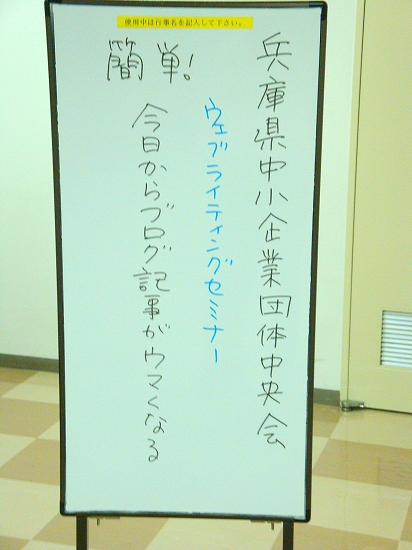 使用中は行事名を記入して下さい。
兵庫県中小企業団体中央会
ウェブライティングセミナー
簡単!
今日からブログ記事がウマくなる